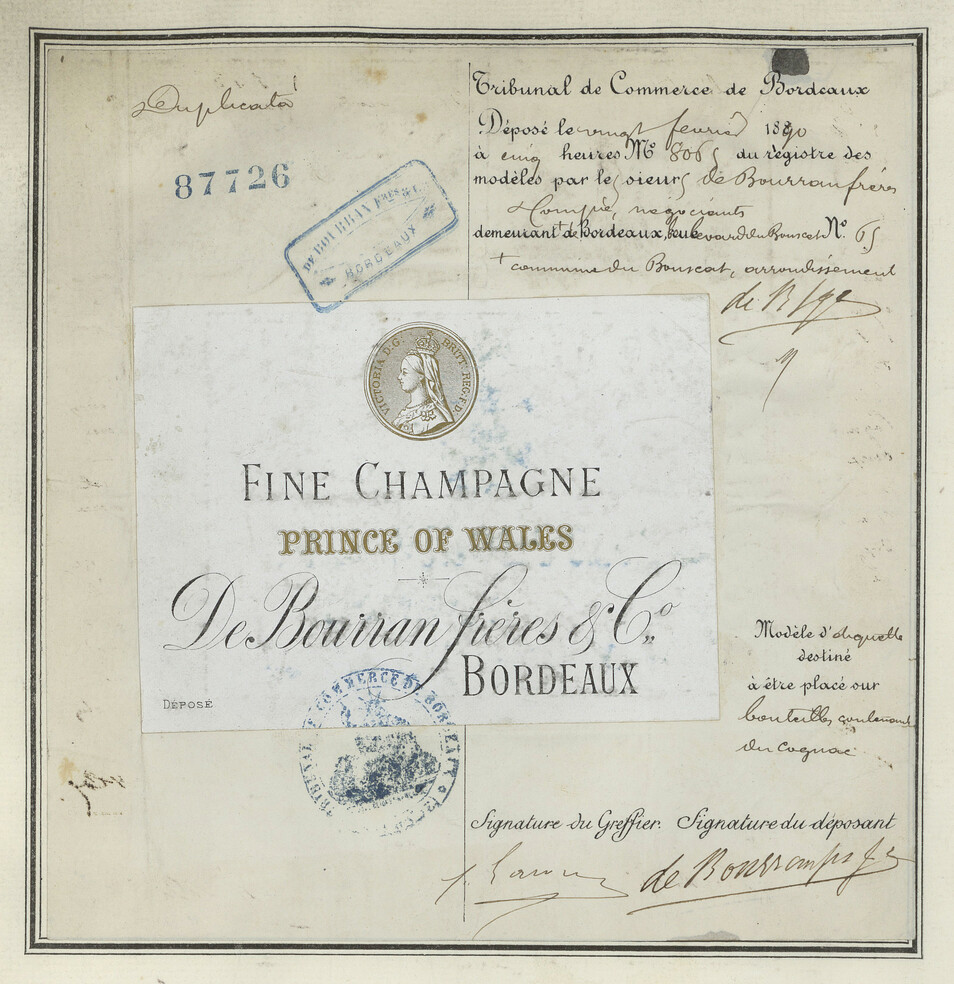 Duplicata
87726
DE BOURRAN FRES & C.
BORDEAUX
Tribunal de Commerce de Bordeaux
Déposé le vingt fevrier 1890
à cinq heures No 8065 du régistre des
modèles par les sieurs de Bourran frères
& Compie, negociants
demeurant + de Bordeaux, boulevard du Bouscat No. 65
+ commune du Bouscat, arrondissement
de B
VICTORIA D:G: BRITT:REG:F:D:
FINE CHAMPAGNE
PRINCE OF WALES
De Bourran frères & Co.,
BORDEAUX
DÉPOSÉ
TRIBUNAL DE COMMERCE DE BORDEAUX
Modèle d'étiquette
destiné
à être placé sur
bouteilles contenant
du cognac
Signature du Greffier. Signature du déposant
de Bourran